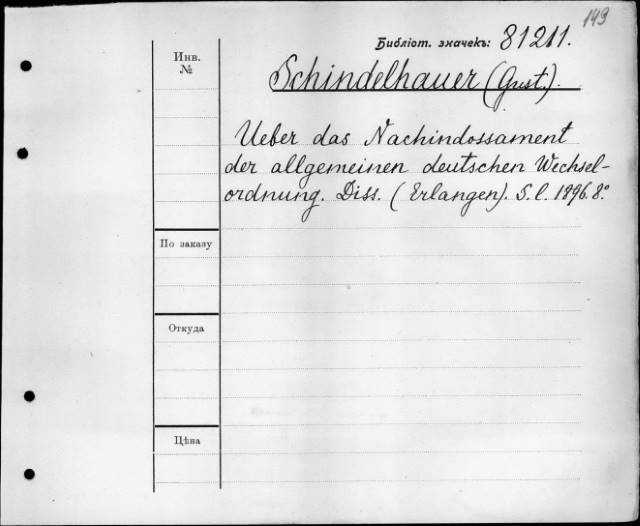 149
Библіот. значекъ: 81211.
Инв. №
Schindelhauer (Gust.).
Ueber das Nachindossament
der allgemeinen deutschen Wechsel-
ordnung. Diss. (Erlangen). S. l. 1896. 8°
По заказу
Откуда
Цѣна